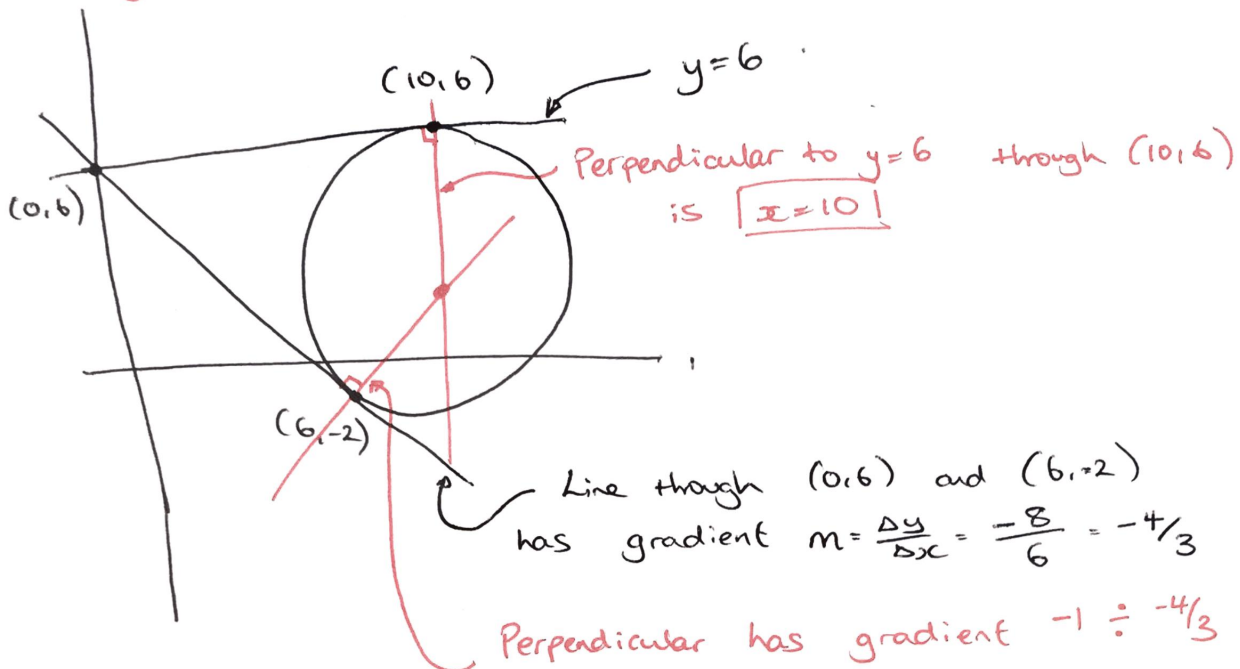 (10,6)
y=6
(0,6)
Perpendicular to y=6 through (10,6)
is x=10
(6,-2)
Line though (0,6) and (6,-2)
has gradient m = Δy/Δx = -8/6 = -4/3
Perpendicular has gradient -1 ÷ -4/3